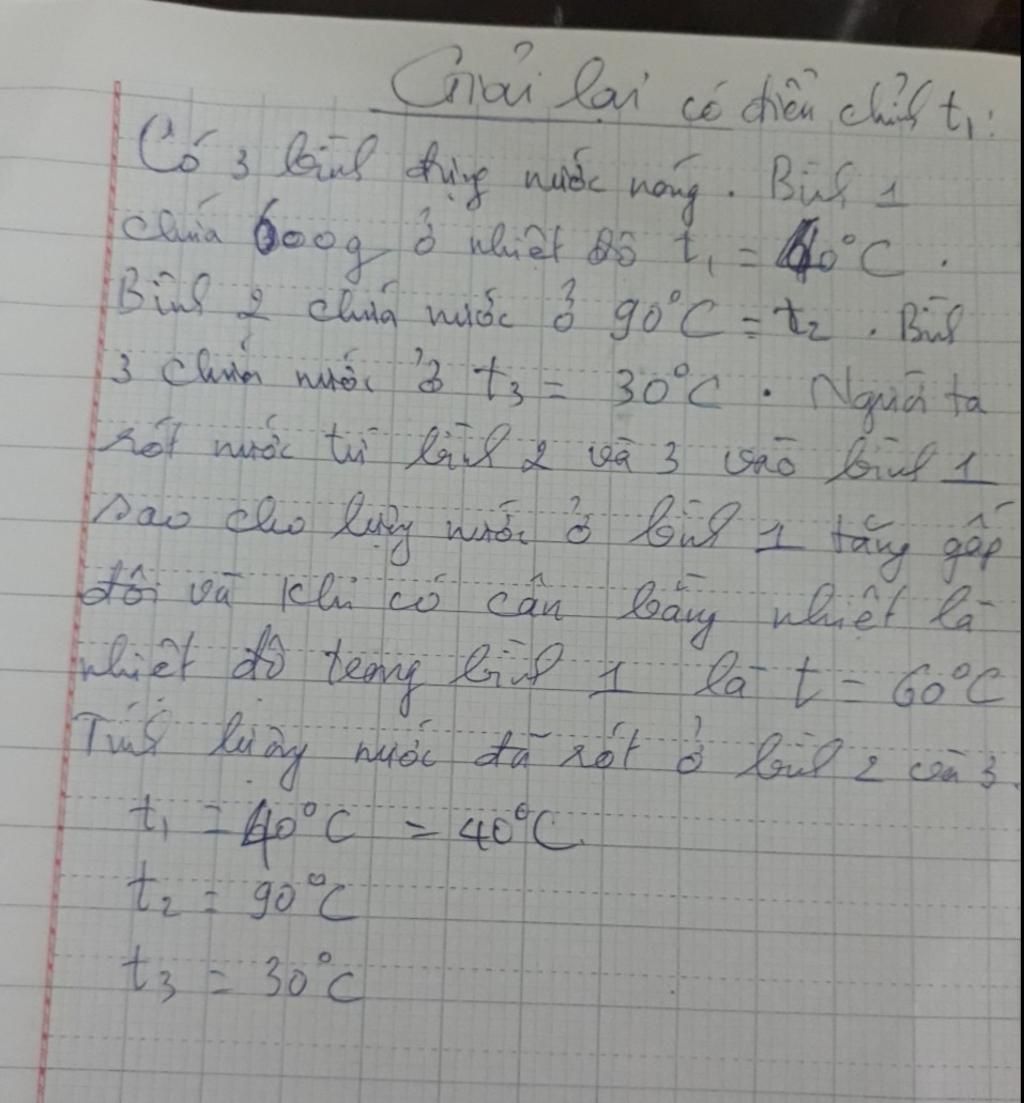 Giải lại có điều chỉnh t₁:
Có 3 bình đựng nước nóng. Bình 1
chứa 600g ở nhiệt độ t₁ = 40°C.
Bình 2 chứa nước ở 90°C = t₂. Bình
3 chứa nước ở t₃ = 30°C. Người ta
rót nước từ bình 2 và 3 vào bình 1
sao cho lượng nước ở bình 1 tăng gấp
đôi và khi có cân bằng nhiệt là
nhiệt độ trong bình 1 là t = 60°C
Tính lượng nước đã rót ở bình 2 và 3.
t₁ = 40°C = 40°C
t₂ = 90°C
t₃ = 30°C